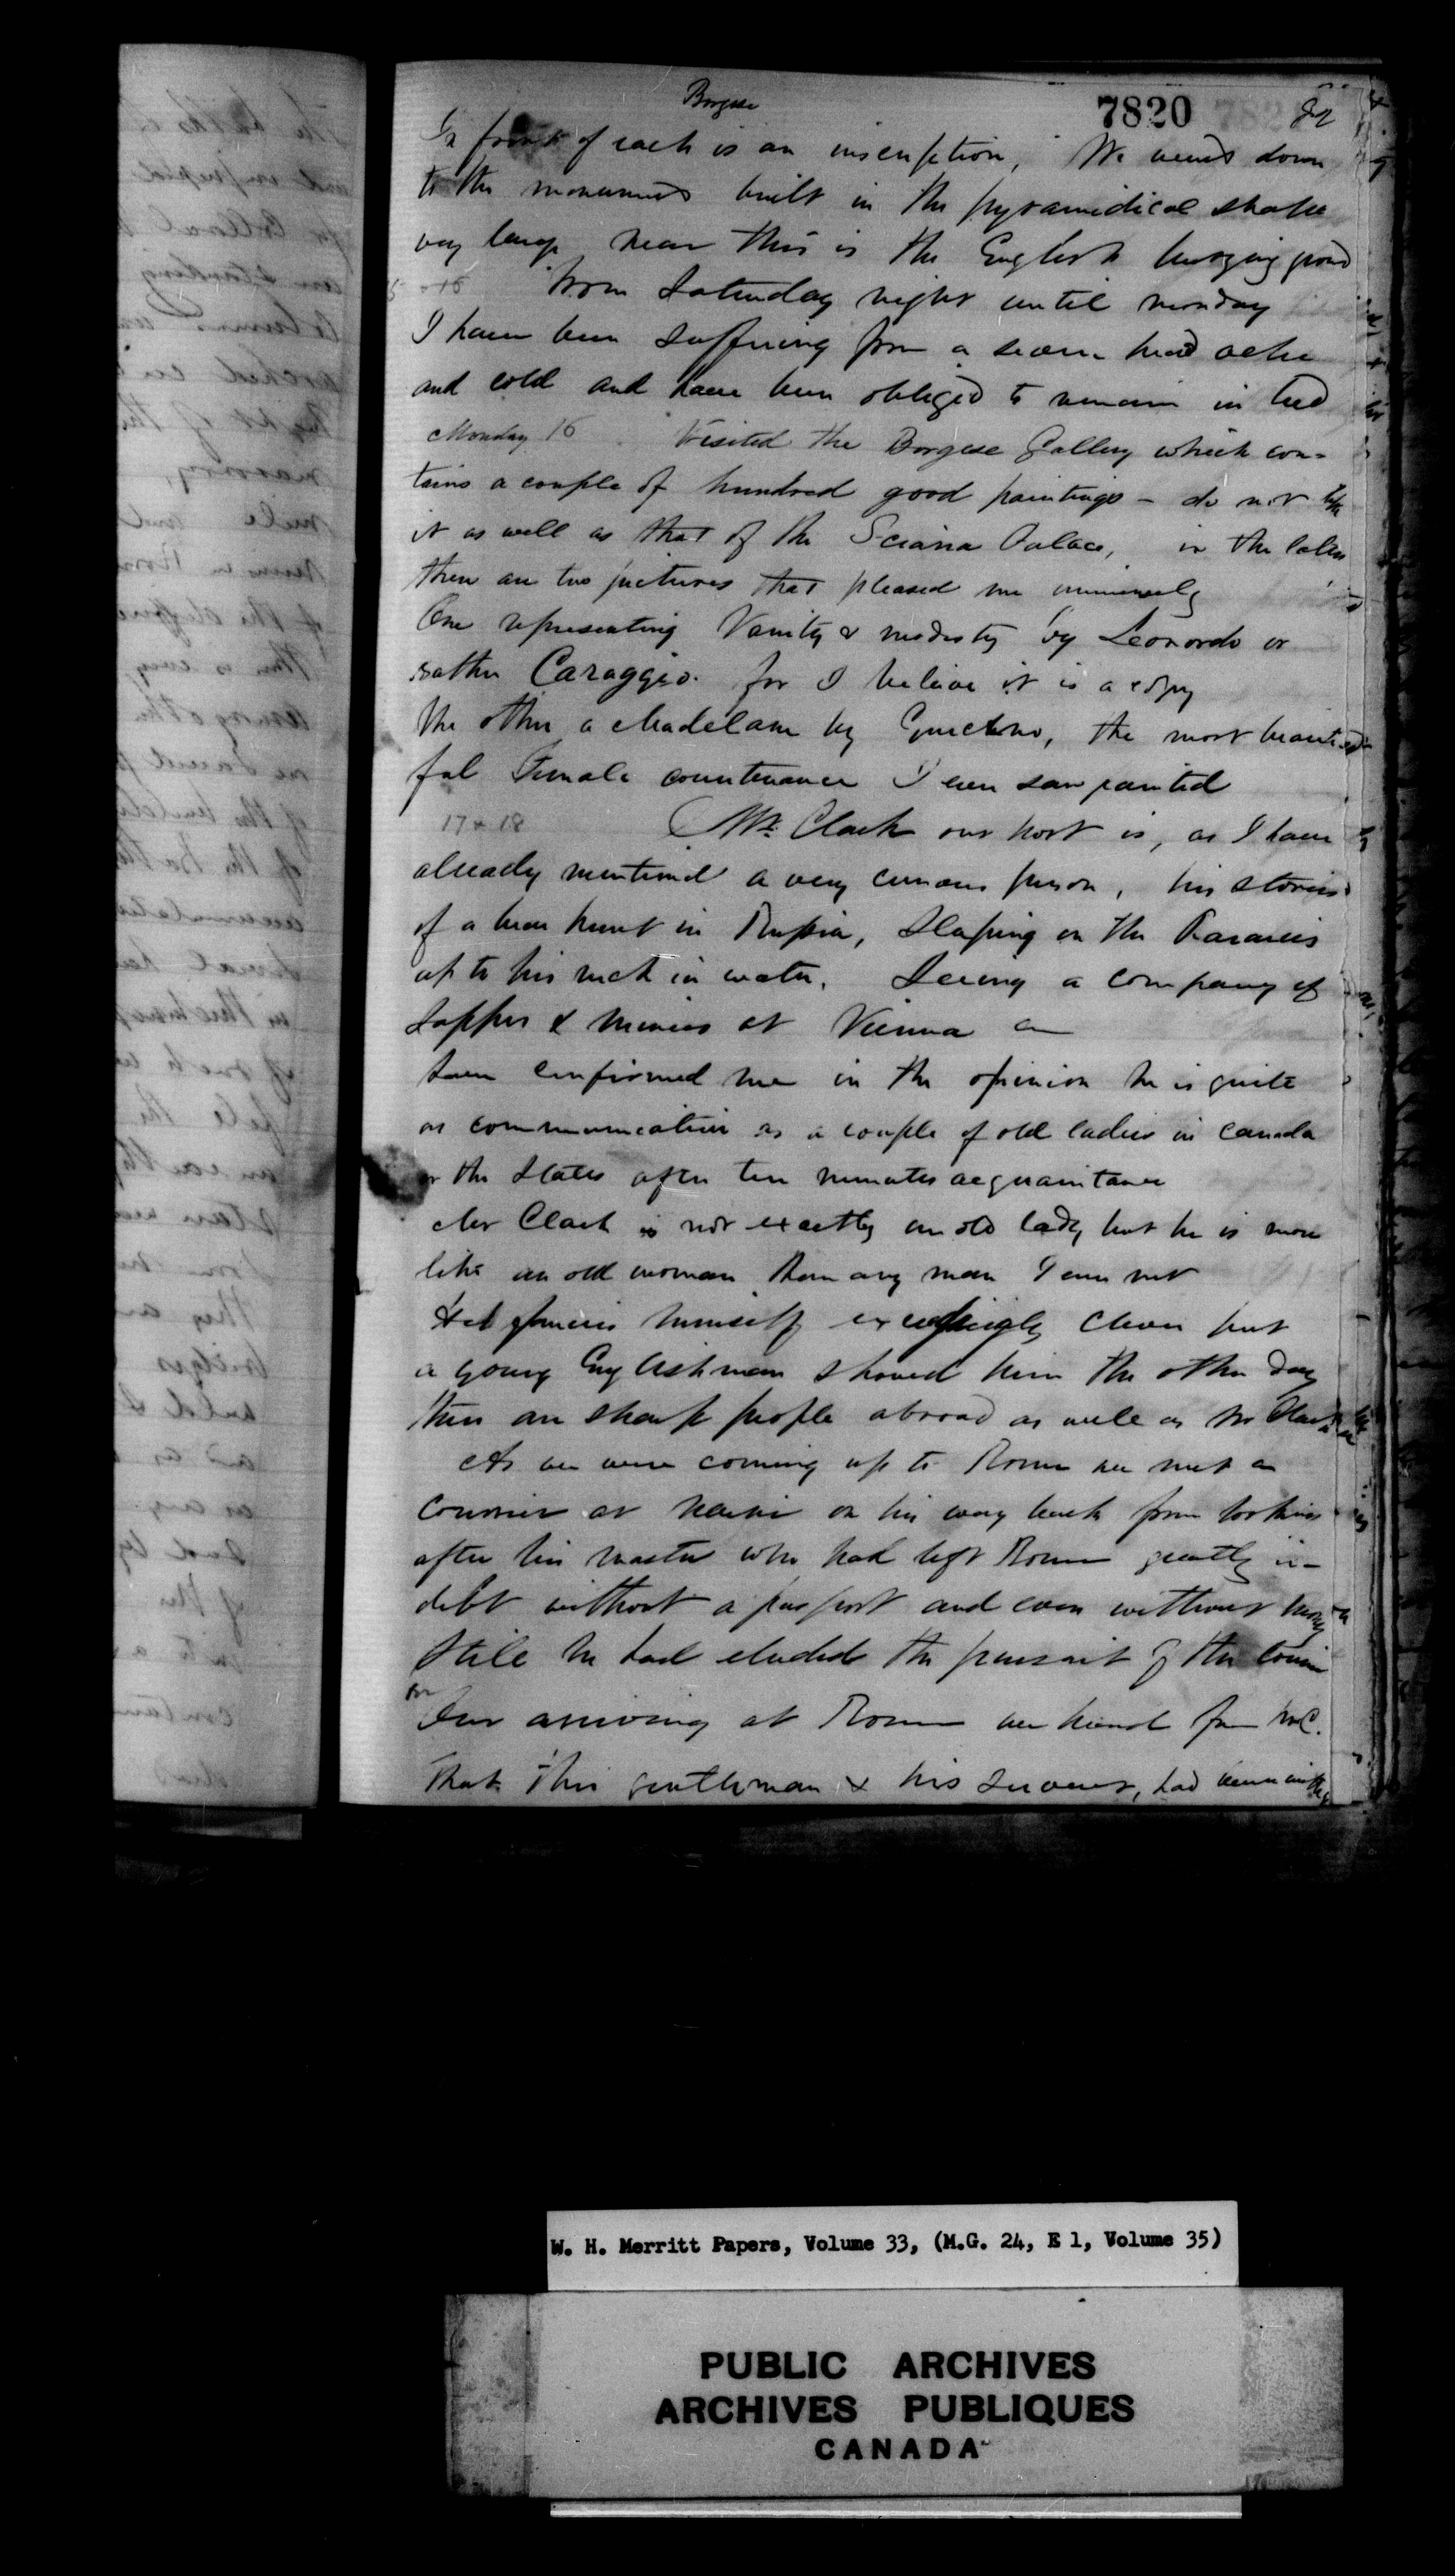 Borgese
7820
In front of each is an inscription, We went down
to the monument built in the pyramidical shape
very large near this is the English burying ground
15 - 16 From Saturday night until monday
I have been suffering from a severe head ache
and cold and have been obliged to remain in bed
Monday 16 Visited the Borgese Gallery which con-
tains a couple of hundred good paintings - do not like
it as well as that of the Sciarra Palace, in the latter
there are two pictures that pleased me immensely
One representing Vanity & modesty by Leonardo or
rather Caraggio. for I believe it is a copy
the other a Madelane by the most beauti
ful Female countenance I ever saw painted
17 & 18 Mr. Clark our host is, as I have
already mentioned a very curious person, his stories
of a bear hunt in Russia, Sleeping on the
up to his neck in water. Seeing a company of
Sappers & miners at Vienna
have confirmed me in the opinion he is quite
as communicative as a couple of old ladies in Canada
or the States after ten minutes acquaintance
Mr Clark is not exactly an old lady but he is more
like an old woman than any man I ever met
himself exceedingly clever but
a young Englishman showed him the other day
there are sharp people abroad as well as Mr Clark
As we were coming up to Rome we met a
Courier at on his way back from looking
after his master who had left Rome greatly in-
debt without a passport and even without money
Still he had eluded the pursuit of the Courier
On our arriving at Rome we heard from Mr C.
that this gentleman & his servant, had been in the
W. H. Merritt Papers, Volume 33, (M.G. 24, E 1, Volume 35)
PUBLIC ARCHIVES
ARCHIVES PUBLIQUES
CANADA